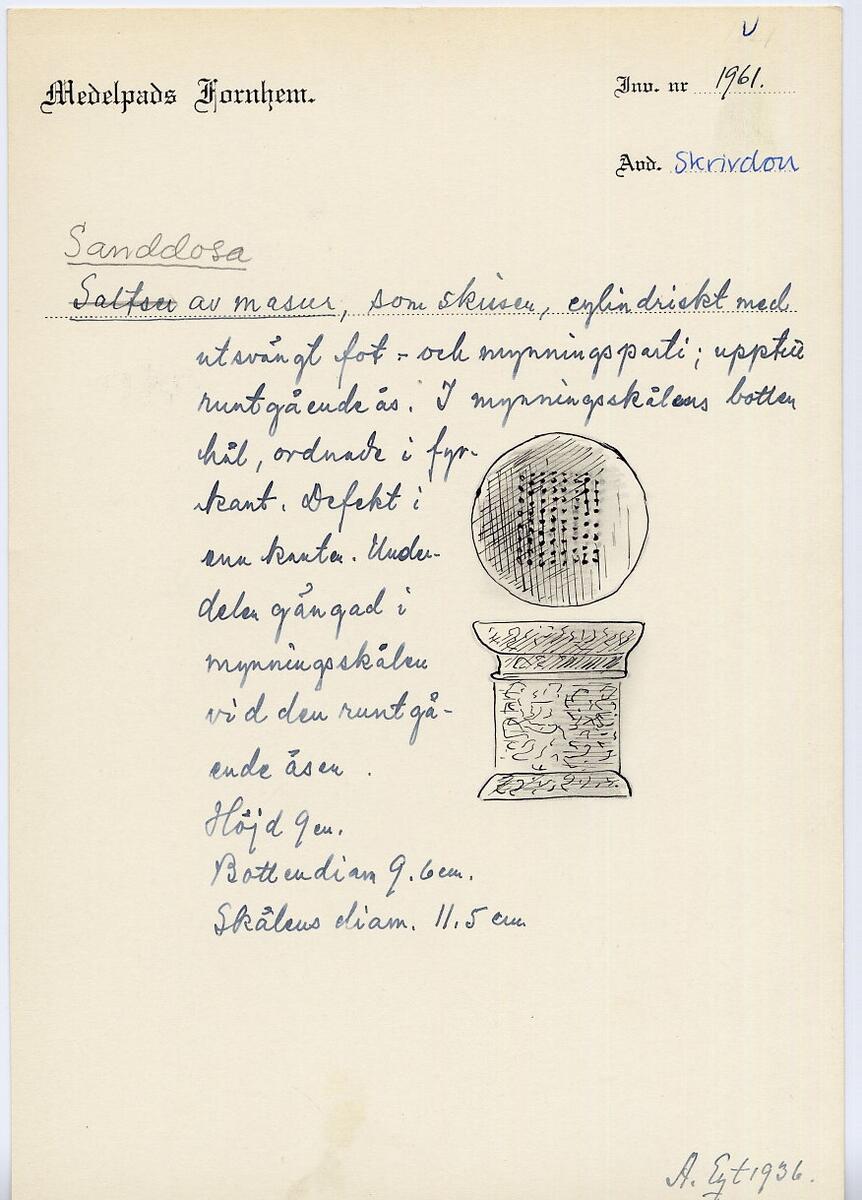 V
Medelpads Fornhem.
Inv. nr 1961.
Avd. Skrivdon
Sanddosa
Saltser av masur, som skisen, cylindriskt med
utsvängt fot- och mynningsparti; upptill
runtgående ås. I mynningsskålens botten
hål, ordnade i fyr-
kant. Defekt i
ena kanten. Under-
delen gängad i
mynningsskålen
vid den runtgå-
ende åsen.
Höjd 9 cm.
Bottendiam 9.6 cm.
Skålens diam. 11.5 cm
A. Eyt 1936.